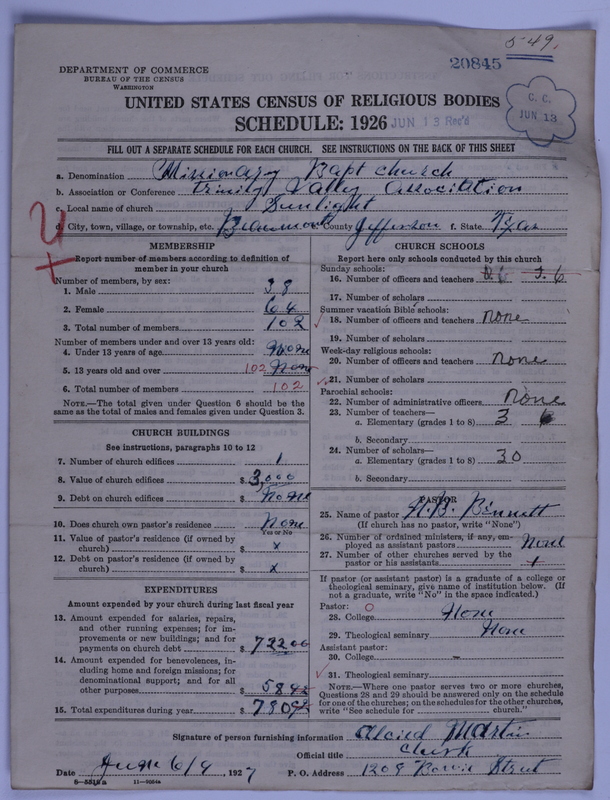 549.
20845
DEPARTMENT OF COMMERCE
BUREAU OF THE CENSUS
WASHINGTON
C. C.
JUN 13
UNITED STATES CENSUS OF RELIGIOUS BODIES
SCHEDULE: 1926 JUN 13 Rec'd
FILL OUT A SEPARATE SCHEDULE FOR EACH CHURCH. SEE INSTRUCTIONS ON THE BACK OF THIS SHEET
a. Denomination Missionary Bapt church
b. Association or Conference Trinity Valley Association
c. Local name of church Sunlight
d. City, town, village, or township, etc. Beaumont County Jefferson f. State Texas
MEMBERSHIP
Report number of members according to definition of
member in your church
Number of members, by sex:
1. Male 38
2. Female 64
3. Total number of members 102
Number of members under and over 13 years old:
4. Under 13 years of age None
5. 13 years old and over 102 None
6. Total number of members 102
NOTE.—The total given under Question 6 should be
same as the total of males and females given under Question 3.
CHURCH BUILDINGS
See instructions, paragraphs 10 to 12
7. Number of church edifices 1
8. Value of church edifices $ 3,000
9. Debt on church edifices $ None
10. Does church own pastor's residence None
Yes or No
11. Value of pastor's residence (if owned by
church) $ x
12. Debt on pastor's residence (if owned by
church) $ x
EXPENDITURES
Amount expended by your church during last fiscal year
13. Amount expended for salaries, repairs,
and other running expenses; for im-
provements or new buildings; and for
payments on church debt $ 72200
14. Amount expended for benevolences, in-
cluding home and foreign missions; for
denominational support; and for all
other purposes $ 5892
15. Total expenditures during year $ 78092
CHURCH SCHOOLS
Report here only schools conducted by this church
Sunday schools:
16. Number of officers and teachers 6
17. Number of scholars
Summer vacation Bible schools:
18. Number of officers and teachers none
19. Number of scholars
Week-day religious schools:
20. Number of officers and teachers none
21. Number of scholars
Parochial schools:
22. Number of administrative officers none
23. Number of teachers—
a. Elementary (grades 1 to 8) 3
b. Secondary
24. Number of scholars—
a. Elementary (grades 1 to 8) 30
b. Secondary
PASTOR
25. Name of pastor Bennett
(If church has no pastor, write "None")
26. Number of ordained ministers, if any, em-
ployed as assistant pastors None
27. Number of other churches served by the
pastor or his assistants 1
If pastor (or assistant pastor) is a graduate of a college or
theological seminary, give name of institution below. (If
not a graduate, write "No" in the space indicated.)
Pastor: O
28. College None
29. Theological seminary None
Assistant pastor:
30. College
31. Theological seminary
NOTE.—Where one pastor serves two or more churches,
Questions 28 and 29 should be answered only on the schedule
for one of the churches; on the schedules for the other churches,
write "See schedule for church."
Signature of person furnishing information Martin
Official title Clerk
Date June 1927 P. O. Address 1209 Bowie Street
11—9064a